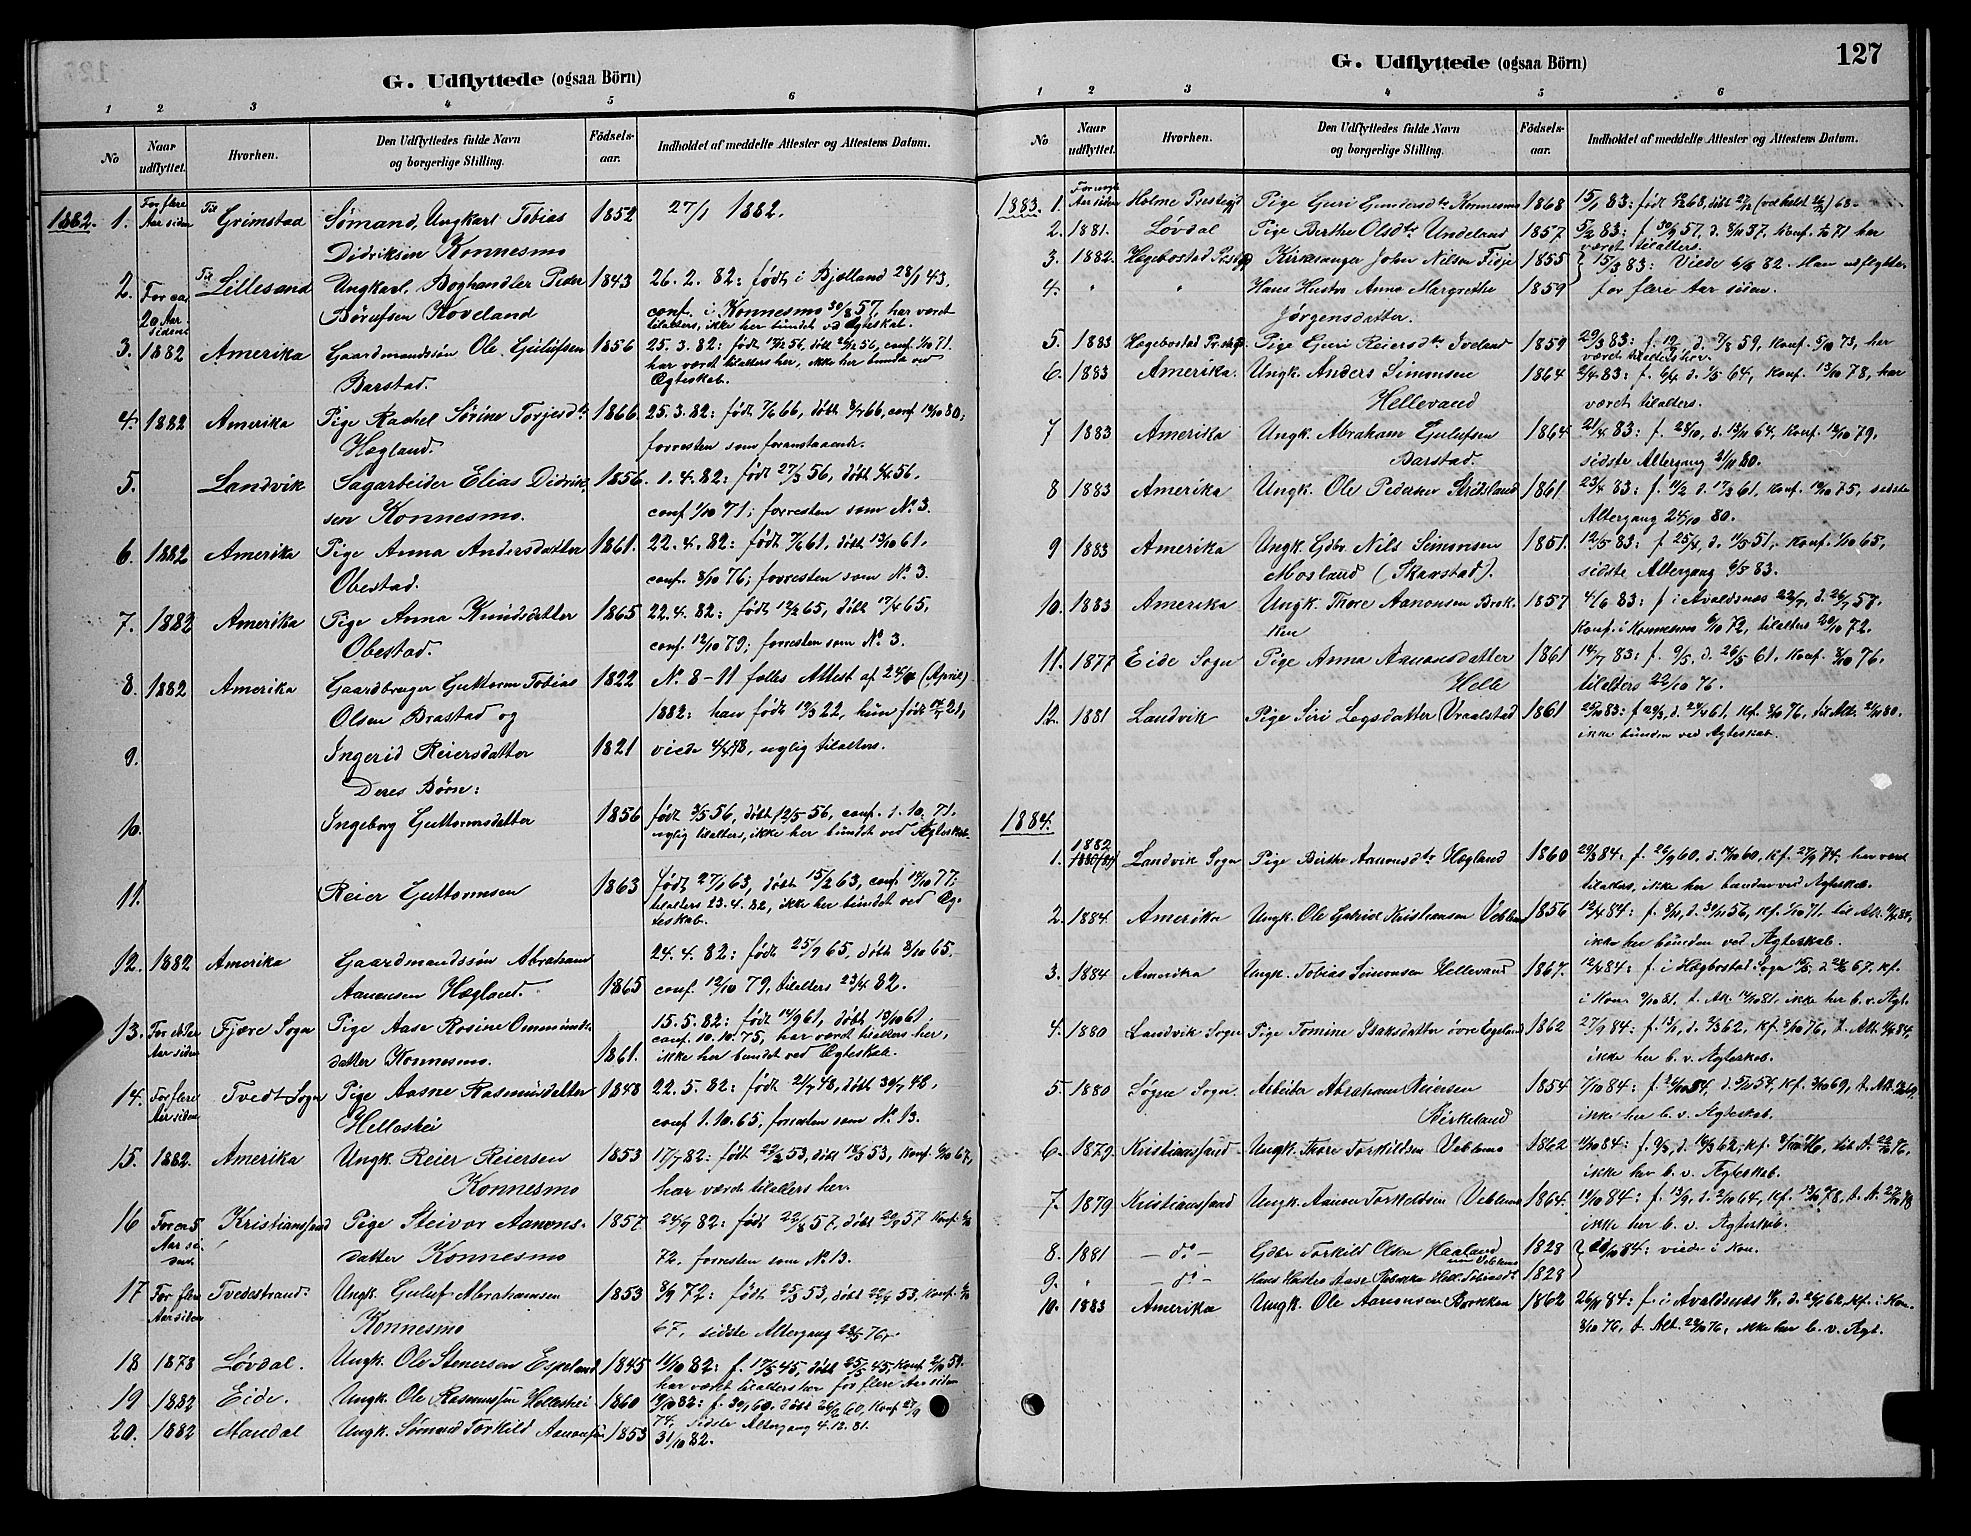 G. Udflyttede (ogsaa Börn)
1 2 3 4 5 6
No
Naar udflyttet.
Hvorhen.
Den Udflyttedes fulde Navn og borgerlige Stilling.
Födsels-aar.
Indholdet af meddelte Attester og Attestens Datum.
1882. 1. For flere Til Grimstad Sømand, Ungkarl Tobias 1852 27/1 1882.
Aar siden Didriksen Konnesmo
2. For ca. Til Lillesand Ungkarl. Boghandler Peder 1843 26. 2. 82: født i Bjelland 28/1 43,
20 Aar Børufsen Hoveland conf. i Konnesmo 30/8 57, har været
siden tilalters, ikke her bundet ved Ægteskab.
3. 1882 Amerika Gaardmandssøn Ole Gulufsen 1856 25. 3. 82: født 56, døbt 56, conf. 1/10 71.
Barstad. har været tilalters her, ikke her bunden ved
Ægteskab.
4. 1882 Amerika Pige Rachel Sørine Torjesdr 1866 25. 3. 82: født 66, døbt 66, conf 80;
Hægland. forresten som foranstaaende.
5. Landvik Sagarbeider Elias Didrik- 1856. 1. 4. 82: født 27/3 56, døbt 56.
sen Konnesmo. conf 1/10 71; forresten som No 3.
6. 1882 Amerika Pige Anna Andersdatter 1861. 22. 4. 82: født 61, døbt 13/10 61.
Obestad. conf. 8/10 76; forresten som No. 3.
7. 1882 Amerika Pige Anna Knudsdatter 1865 22. 4. 82: født 12/3 65, døbt 17/4 65,
Obestad. conf. 12/10 79; forresten som No. 3.
8. 1882 Amerika Gaardbruger Guttorm Tobias 1822 No. 8-11 fælles Attest af 24/4 (April)
Olsen Brastad og 1882: han født 19/3 22, hun født 21,
9. Ingerid Reiersdatter 1821 viede 48, uglig tilalters.
Deres Børn:
10. Ingeborg Guttormsdatter 1856 født 3/5 56, døbt 12/5 56, conf. 1. 10. 71.
uglig tilalters, ikke her bundet ved Ægteskab.
11. Reier Guttormsen 1863 født 27/1 63, døbt 15/2 63, conf. 14/10 77;
tilalters 23. 4. 82, ikke her bundet ved Æg-
teskab.
12. 1882 Amerika Gaardmandssøn Abraham 24. 4. 82: født 25/9 65, døbt 8/10 65.
Aanonsen Hægland. 1865 conf. 12/10 79, tilalters 23/4 82.
13. For et Par Fjære Sogn Pige Aase Rosine Ommunds- 15. 5. 82: født 14/9 61, døbt 13/10 61.
Aar siden datter Konnesmo. 1861. conf. 10. 10. 75, har været tilalters her,
ikke her bundet ved Ægteskab.
14. For flere Tvedt Sogn Pige Aasne Rasmusdatter 1848 22. 5. 82: født 21/7 48, døbt 30/7 48,
Aar siden Helleshei conf 1. 10. 65, forresten som No. 13.
15. 1882. Amerika Ungk. Reier Reiersen 1853 17/7 82: født 22/2 53, døbt 13/3 53, Konf. 67,
Konnesmo har været tilalters her.
16 For ca 5 Kristianssand Pige Steivor Aanons- 1857 24/7 82: født 22/8 57, døbt 57 Konf.
Aar si- datter Konnesmo 72, forresten som No 13.
den
17 For flere Tvedestrand. Ungk. Guluf Abrahamsen 1853 8/9 72: født 25/3 53, døbt 53, Konf.
Aar siden Konnesmo 67, sidste Altergang 76.
18 1878 Løvdal. Ungk. Ole Stenersen Espeland 1845 82: f. 17/5 45, døbt 25/5 45, Konf 2/10 59.
har været tilalters her for flere Aar siden
19 1882 Eide. Ungk. Ole Rasmussen Helleshei 1860 82: f. 60, døbt 26/2 60, Konf 27/9
74, sidste Altergang 4. 12. 81.
20. 1882 Mandal Ungk. Sømand Torkild Aanonsen 1853 31/10 82.
127
G. Udflyttede (ogsaa Börn)
1 2 3 4 5 6
No
Naar udflyttet.
Hvorhen.
Den Udflyttedes fulde Navn og borgerlige Stilling.
Födsels-aar.
Indholdet af meddelte Attester og Attestens Datum.
1883. 1. Aar siden Holme Prestegj Pige Guri Gundersdr Konnesmo 1868 15/1 83: født 68, døbt 27/12 68.
2. 1881. Løvdal Pige Berthe Olsdtr Undeland 1857 5/2 83: f. 30/9 57, d. 57, Konf. 71 har
været tilalters.
3. 1882. Hegebostad Prestegj Kirkesanger John Nilsen Fidje 1855 15/3 83: Viede 82. Han udflyttet
4. " " Hans Hustro Anna Margrethe 1859 for flere Aar siden.
Jørgensdatter.
5. 1883 Hegebostad Prestgj. Pige Guri Reiersdtr Iveland 1859 29/3 83: f. d. 59, Konf. 5/10 73, har
været tilalters her.
6. 1883 Amerika. Ungk. Anders Simonsen 1864 83: f. 6/4 d. 1/5 64, Konf. 13/10 78, har
Hellevand været tilalters.
7 1883 Amerika Ungk. Abraham Gulufsen 1864 21/4 83: f. 28/10, d. 13/11 64, Konf. 12/10 79.
Barstad. sidste Altergang 21/11 80.
8 1883 Amerika Ungk. Ole Pedersen 1861 23/4 83: f. 11/2 d. 17/3 61, Konf. 10/10 75, sidste
Altergang 24/10 80.
9 1883 Amerika Ungk. Gdbr. Nils Simonsen 1851. 12/5 83: f 25/4, d. 11/5 51, Konf. 1/10 65,
Mosland (Skarstad). sidste Altergang 6/5 83.
10. 1883 Amerika Ungk. Thore Aanonsen Brek- 1857 4/6 83: f i Avaldsnes 22/7, d. 26/7 57.
ken Konf. i Konnesmo 6/10 72, tilalters 20/10 72.
11. 1877 Eide Sogn Pige Anna Aanonsdatter 1861 14/7 83: f. 9/5, d. 26/5 61. Konf. 8/10 76.
Helle tilalters 22/10 76.
12. 1881 Landvik Pige Siri Legsdatter Vraalstad 1861 25/10 83: f 29/3, d. 21/4 61, Kf. 8/10 76, til Alt. 21/11 80.
ikke bunden ved Ægteskab.
1884.
1. 1882 Landvik Sogn Pige Birthe Aanonsdtr Hægland 1860 29/3 84: f. 60, d. 60, Kf. 27/9 74, har været
tilalters, ikke her bunden ved Ægteskab.
2. 1884 Amerika Ungk. Ole Gabriel Kristiansen Veblems 1856 12/4 84: f. 8/11, d. 30/11 56, Kf. 1/10 71. til Alt. 84,
ikke her bunden ved Ægteskab.
3. 1884 Amerika Ungk. Tobias Simonsen Hellevand 1867. 12/4 84: f. i Hægbostad Sogn d. 67. Kf.
i Kon. 9/10 81, t. Alt. 81. ikke her b. v. Ægt.
4. 1880 Landvik Sogn Pige Tomine Isaksdatter øvre Egeland 1862 27/7 84: f. d. 62, Kf. 8/10 76, t. Alt. 84,
ikke her b. v. Ægteskab.
5. 1880 Søgne Sogn. Arbeider Abraham Reiersen 1854 7/10 84: f. 54, d. 54, Kf. 69, t. Alt. 69,
Birkeland ikke her b. v. Ægteskab.
6. 1879 Kristianssand Ungk. Thore Torkildsen Veblems 1862 84: f. 9/3, d. 62, Kf. 8/10 76, til A. 22/10 76,
ikke her b. v. Ægteskab.
7. 1879 Kristianssand Ungk. Aanon Torkildsen Veblems 1864. 84: f. 13/9, d. 2/10 64, Kf. 13/10 78, t. A. 27/10 78
ikke her b. v. Ægteskab.
8. 1881 — do — Gdbr Torkild Olsen Haaland 1828 84: viede i Kon.
Veblems
9. " — do — Hans Hustro Aase Tobiasdr 1828
10. 1883 Amerika Ungk. Ole Aanonsen Brekken 1862 84: f. i Avaldsnes d. 62, Kf. i Kon.
8/10 76, t. Alt. 76, ikke her b. v. Ægt.